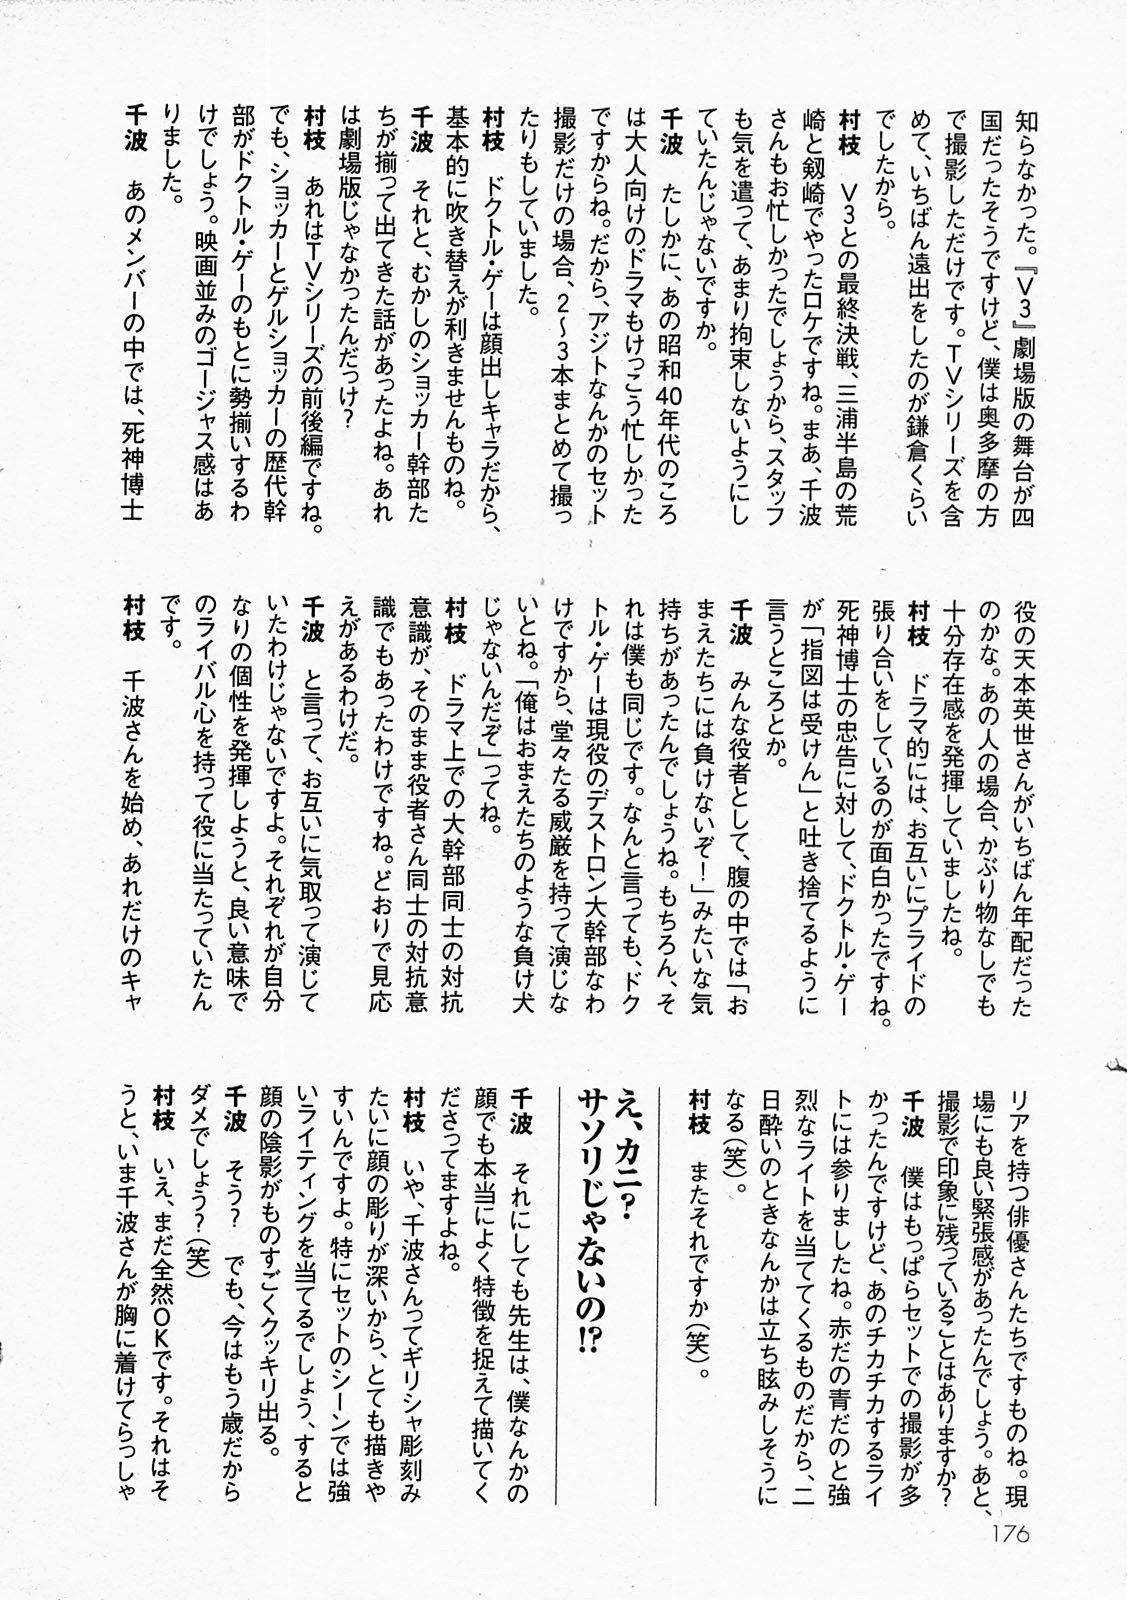 知らなかった。『V3』劇場版の舞台が四
国だったそうですけど、僕は奥多摩の方
で撮影しただけです。TVシリーズを含
めて、いちばん遠出をしたのが鎌倉くらい
でしたから。
村枝　V3との最終決戦、三浦半島の荒
崎と剱崎でやったロケですね。まあ、千波
さんもお忙しかったでしょうから、スタッフ
も気を遣って、あまり拘束しないようにし
ていたんじゃないですか。
千波　たしかに、あの昭和40年代のころ
は大人向けのドラマもけっこう忙しかった
ですからね。だから、アジトなんかのセット
撮影だけの場合、2〜3本まとめて撮っ
たりもしていました。
村枝　ドクトル・ゲーは顔出しキャラだから、
基本的に吹き替えが利きませんものね。
千波　それと、むかしのショッカー幹部た
ちが揃って出てきた話があったよね。あれ
は劇場版じゃなかったんだっけ？
村枝　あれはTVシリーズの前後編ですね。
でも、ショッカーとゲルショッカーの歴代幹
部がドクトル・ゲーのもとに勢揃いするわ
けでしょう。映画並みのゴージャス感はあ
りました。
千波　あのメンバーの中では、死神博士
役の天本英世さんがいちばん年配だった
のかな。あの人の場合、かぶり物なしでも
十分存在感を発揮していましたね。
村枝　ドラマ的には、お互いにプライドの
張り合いをしているのが面白かったですね。
死神博士の忠告に対して、ドクトル・ゲー
が「指図は受けん」と吐き捨てるように
言うところとか。
千波　みんな役者として、腹の中では「お
まえたちには負けないぞ！」みたいな気
持ちがあったんでしょうね。もちろん、そ
れは僕も同じです。なんと言っても、ドク
トル・ゲーは現役のデストロン大幹部なわ
けですから、堂々たる威厳を持って演じな
いとね。「俺はおまえたちのような負け犬
じゃないんだぞ」ってね。
村枝　ドラマ上での大幹部同士の対抗
意識が、そのまま役者さん同士の対抗意
識でもあったわけですね。どおりで見応
えがあるわけだ。
千波　と言って、お互いに気取って演じて
いたわけじゃないですよ。それぞれが自分
なりの個性を発揮しようと、良い意味で
のライバル心を持って役に当たっていたん
です。
村枝　千波さんを始め、あれだけのキャ
リアを持つ俳優さんたちですものね。現
場にも良い緊張感があったんでしょう。あと、
撮影で印象に残っていることはありますか？
千波　僕はもっぱらセットでの撮影が多
かったんですけど、あのチカチカするライ
トには参りましたね。赤だの青だのと強
烈なライトを当ててくるものだから、二
日酔いのときなんかは立ち眩みしそうに
なる（笑）。
村枝　またそれですか（笑）。
え、カニ？
サソリじゃないの!?
千波　それにしても先生は、僕なんかの
顔でも本当によく特徴を捉えて描いてく
ださってますよね。
村枝　いや、千波さんってギリシャ彫刻み
たいに顔の彫りが深いから、とても描きや
すいんですよ。特にセットのシーンでは強
いライティングを当てるでしょう、すると
顔の陰影がものすごくクッキリ出る。
千波　そう？　でも、今はもう歳だから
ダメでしょう？（笑）
村枝　いえ、まだ全然OKです。それはそ
うと、いま千波さんが胸に着けてらっしゃ
176